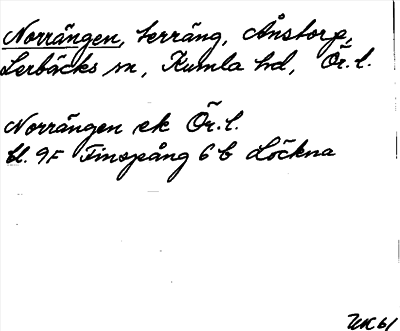 Norrängen, terräng, Ånstorp,
Lerbäcks sn, Kumla hd, Ör. l.
Norrängen ek Ör. l.
bl. 9F Finspång 6 b Löckna
61